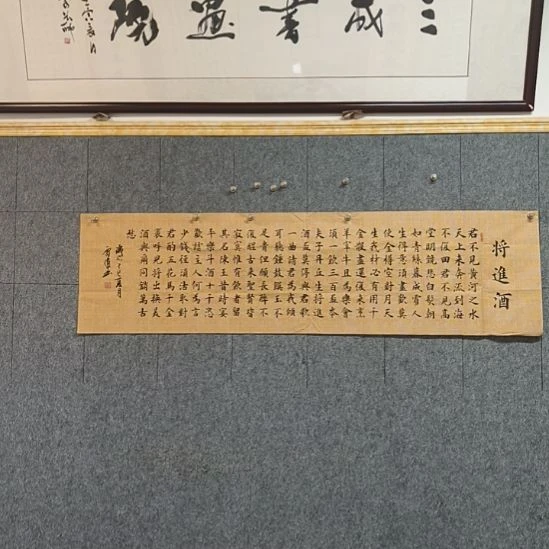 三成書畫院
将進酒
君不見黄河之水
天上来奔流到海
不復回君不見高
堂明鏡悲白髮朝
如青絲暮成雪人
生得意須盡歡莫
使金樽空對月天
生我材必有用千
金散盡還復来烹
羊宰牛且為樂會
須一飲三百盃岑
夫子丹丘生将進
酒盃莫停與君歌
一曲請君為我傾
耳聽鐘鼓饌玉不
足貴但願長醉不
復醒古来聖賢皆
寂寞惟有飲者留
其名陳王昔時宴
平樂斗酒十千恣
歡謔主人何為言
少錢徑須沽取對
君酌五花馬千金
裘呼兒将出換美
酒與爾同銷萬古
愁